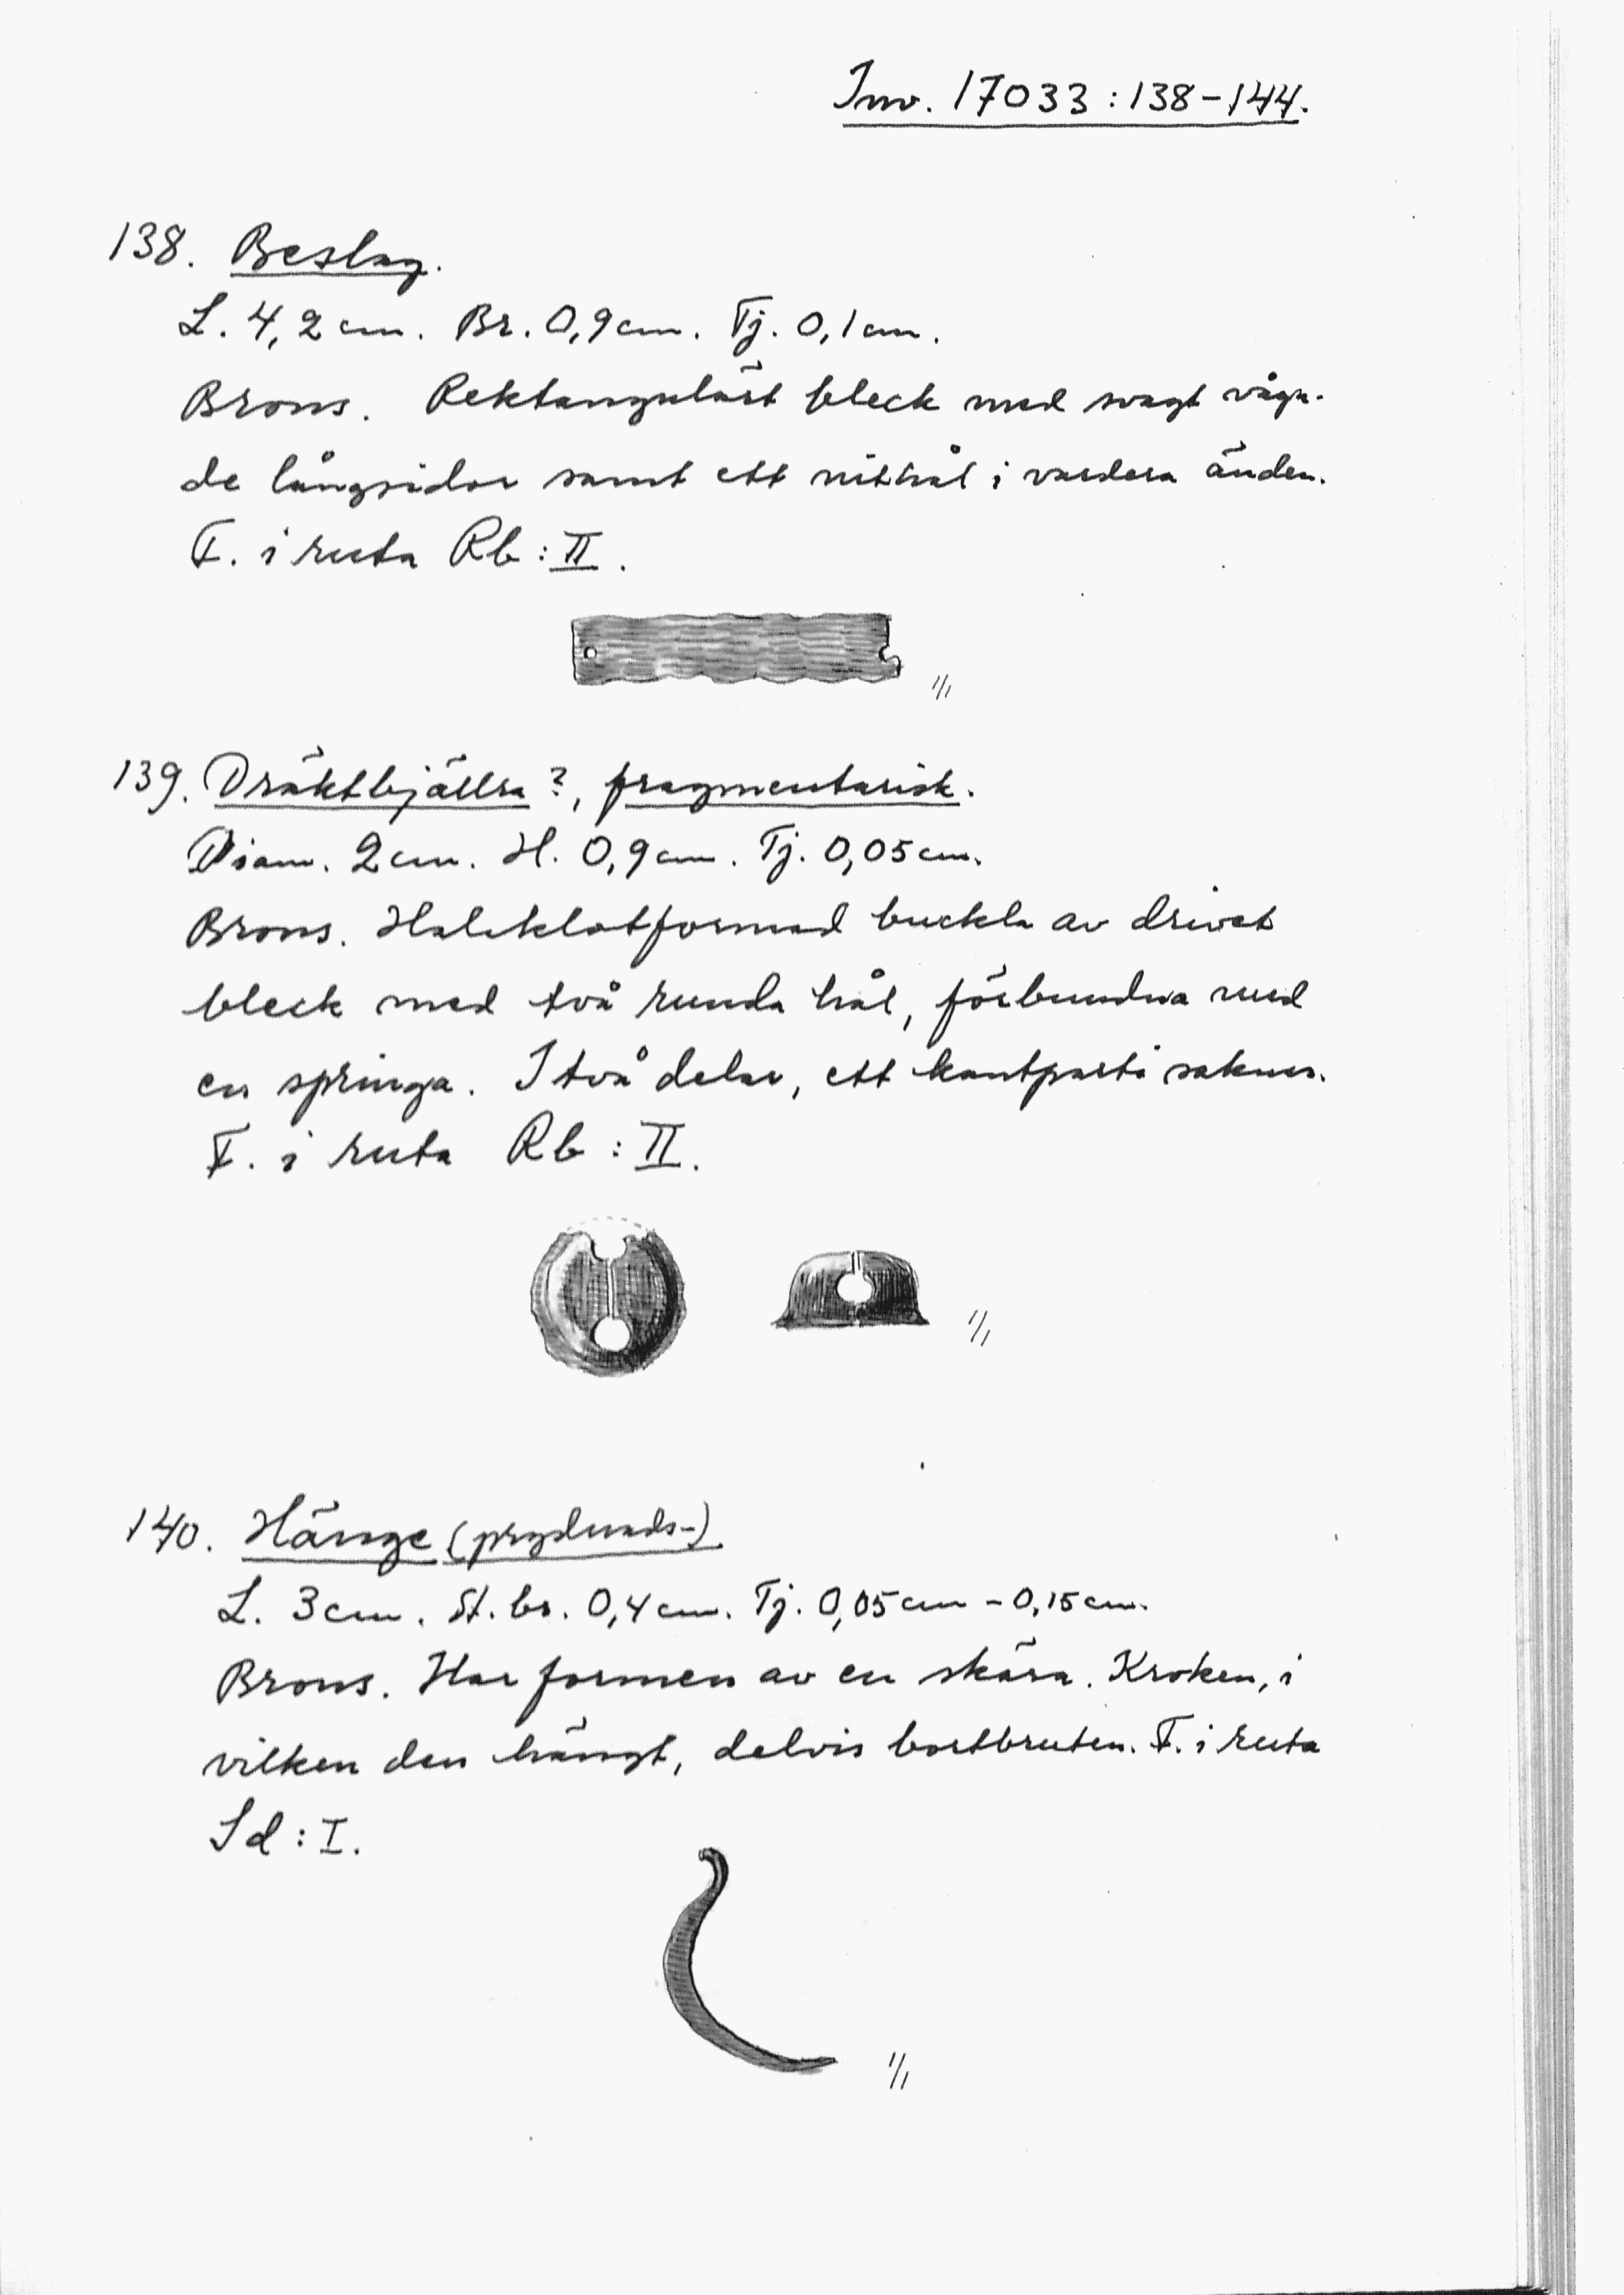 Inv. 17033:138-144.
138. Beslag.
L. 4,2 cm. Br. 0,9 cm. Tj. 0,1 cm.
Brons. Rektangulärt bleck med svagt våga-
de långsidor samt ett nithål i vardera änden.
F. i ruta Rb:II.
1/1
139. Dräktbjällra?, fragmentarisk.
Diam. 2 cm. H. 0,9 cm. Tj. 0,05 cm.
Brons. Halvklotformad buckla av drivet
bleck med två runda hål, förbundna med
en springa. I två delar, ett kantparti saknas.
F. i ruta Rb:II.
1/1
140. Hänge (prydnads-).
L. 3 cm. St. br. 0,4 cm. Tj. 0,05 cm - 0,15 cm.
Brons. Har formen av en skära. Kroken, i
vilken den hängt, delvis bortbruten. F. i ruta
Sd:I.
1/1